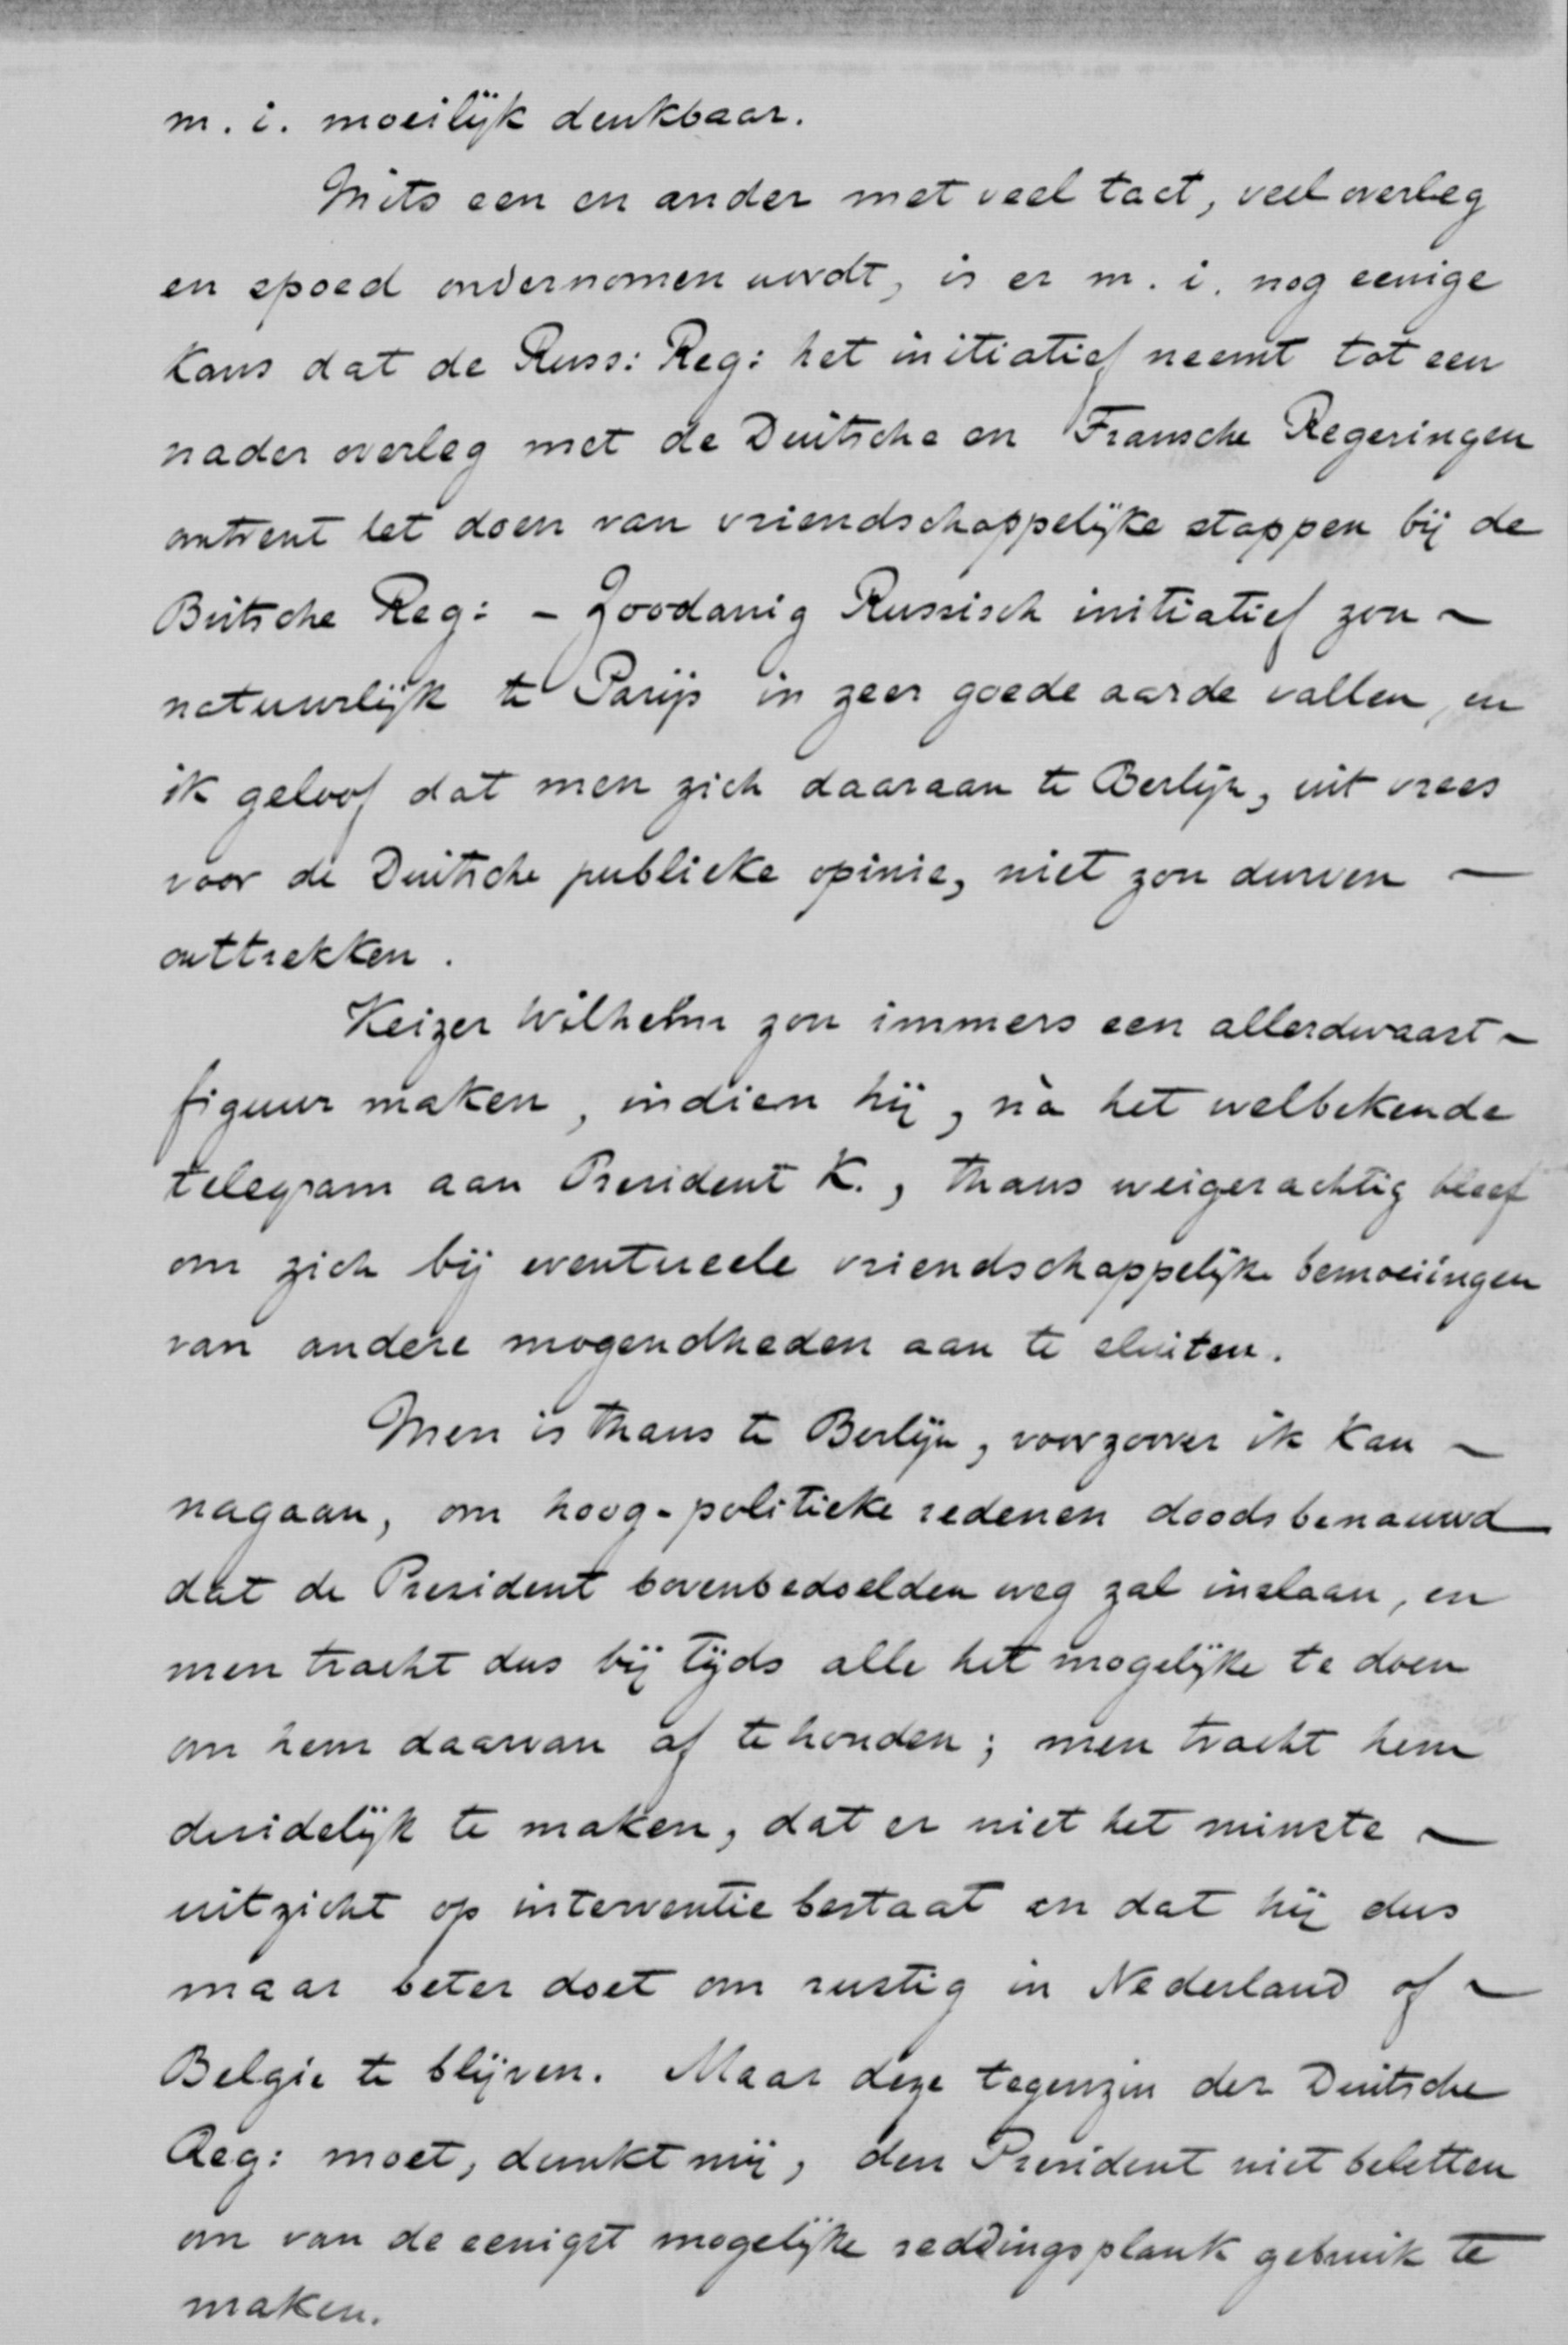 m. i. moeilijk denkbaar.
Mits een en ander met veel tact, veel overleg
en spoed ondernomen wordt, is er m. i. nog eenige
kans dat de Russ: Reg: het initiatief neemt tot een
nader overleg met de Duitsche en Fransche Regeringen
omtrent het doen van vriendschappelijke stappen bij de
Britsche Reg: - Zoodanig Russisch initiatief zou ~
natuurlijk te Parijs in zeer goede aarde vallen, en
ik geloof dat men zich daaraan te Berlijn, uit vrees
voor de Duitsche publieke opinie, niet zou durven —
onttrekken.
Keizer Wilhelm zou immers een allerdwaast ~
figuur maken, indien hij, nà het welbekende
telegram aan President K., thans weigerachtig bleef
om zich bij eventueele vriendschappelijke bemoeiingen
van andere mogendheden aan te sluiten.
Men is thans te Berlijn, voorzoover ik kan ~
nagaan, om hoog-politieke redenen doodsbenauwd
dat de President bovenbedoelden weg zal inslaan, en
men tracht dus bij tijds alle het mogelijke te doen
om hem daarvan af te houden; men tracht hem
duidelijk te maken, dat er niet het minste ~
uitzicht op interventie bestaat en dat hij dus
maar beter doet om rustig in Nederland of ~
Belgie te blijven. Maar deze tegenzin der Duitsche
Reg: moet, dunkt mij, den President niet beletten
om van de eenigst mogelijke reddingsplank gebruik te
maken.